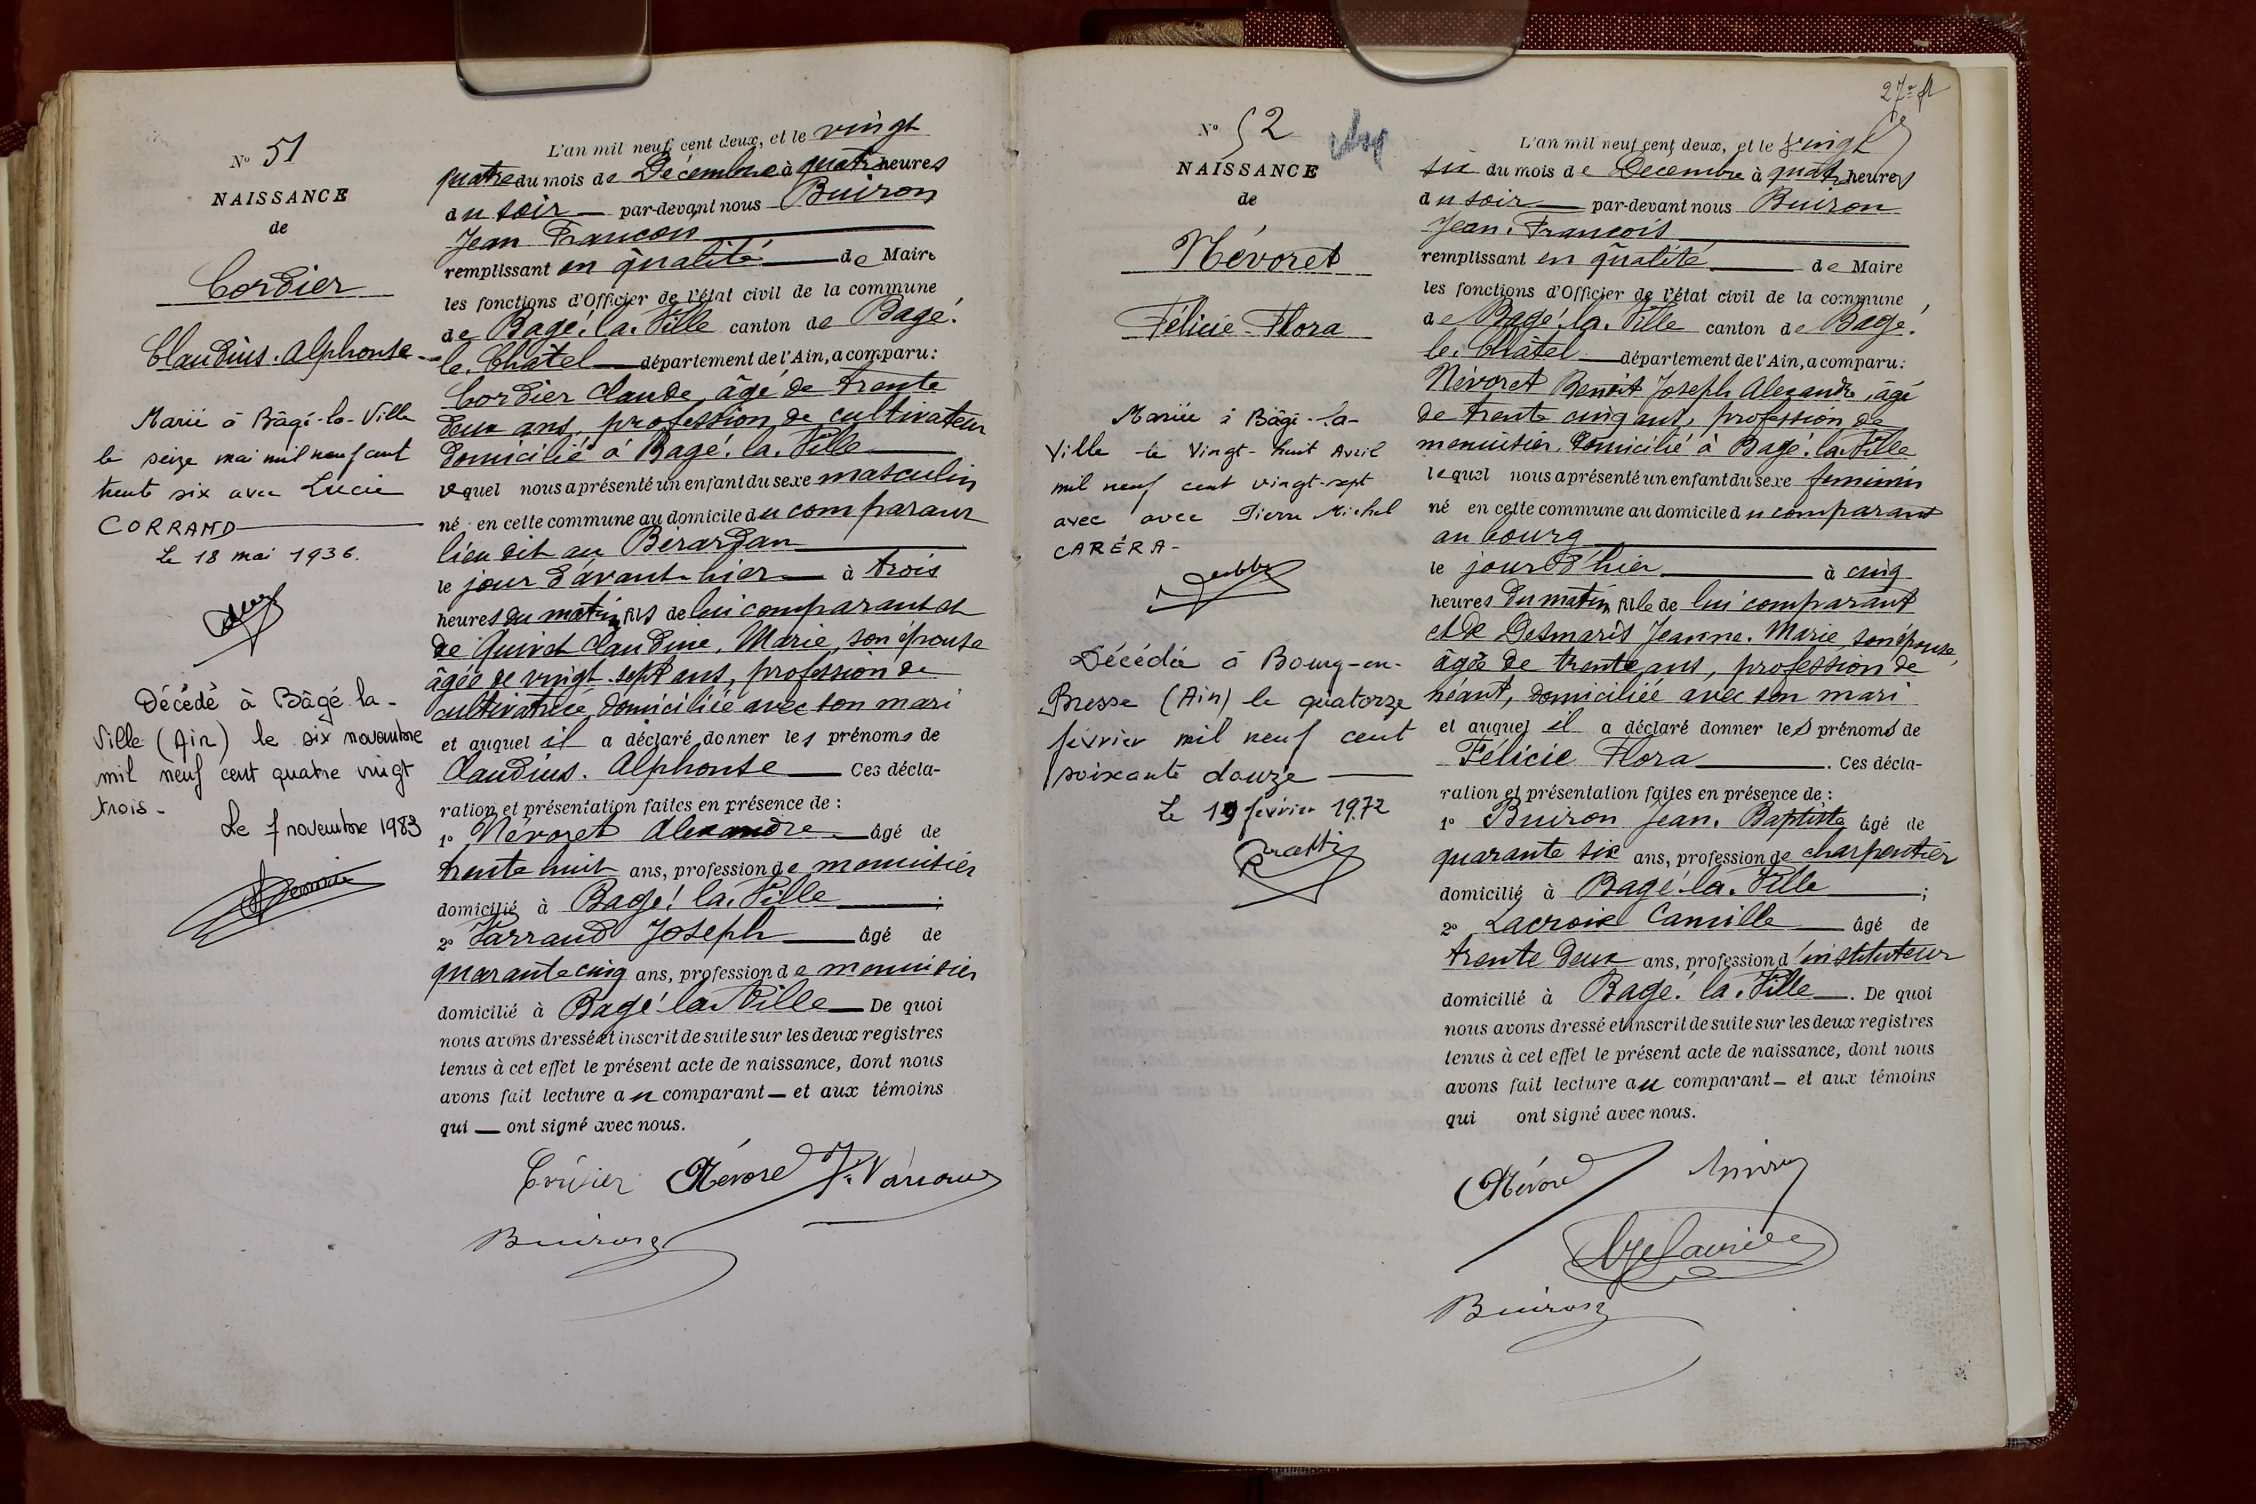 N° 51
NAISSANCE
de
Cordier
Claudius. Alphonse
Marié à Bâgé-la-Ville
le seize mai mil neuf cent
trente six avec Lucie
CORRAND
Le 18 mai 1936.
Décédé à Bâgé la-
Ville (Ain) le six novembre
mil neuf cent quatre vingt
trois-
Le 7 novembre 1983
L'an mil neuf cent deux, et le vingt
quatre du mois de Décembre à quatre heures
du soir — par-devant nous Buiron
Jean François
remplissant en qualité — de Maire
les fonctions d'Officier de l'état civil de la commune
de Bagé. la. Ville canton de Bagé.
le. Châtel — département de l'Ain, a comparu:
Cordier Claude, âgé de trente
deux ans, profession de cultivateur
domicilié à Bagé. la. Ville
lequel nous a présenté un enfant du sexe masculin
né en cette commune au domicile du comparant
lieu dit au Berardan
le jour d'avant-hier — à trois
heures du matin, fils de lui comparant et
de Guiret Claudine. Marie, son épouse
âgée de vingt-sept ans, profession de
cultivatrice, domiciliée avec son mari
et auquel il a déclaré donner les prénoms de
Claudius. Alphonse — Ces décla-
ration et présentation faites en présence de :
1° Névoret Alexandre — âgé de
trente huit ans, profession de menuisier
domicilié à Bagé! la. Ville — ;
2° Varraud Joseph — âgé de
quarante cinq ans, profession de menuisier
domicilié à Bagé la Ville — De quoi
nous avons dressé et inscrit de suite sur les deux registres
tenus à cet effet le présent acte de naissance, dont nous
avons fait lecture au comparant — et aux témoins
qui — ont signé avec nous.
Cordier Névoret J. Varraud
Buiron
27e
N° 52
NAISSANCE
de
Névoret
Félicie Flora
Mariée à Bâgé-la-
Ville le Vingt-huit Avril
mil neuf cent vingt-sept
avec avec Pierre Michel
CARÉRA-
Décédée à Bourg-en-
Bresse (Ain) le quatorze
février mil neuf cent
soixante douze
Le 19 février 1972
L'an mil neuf cent deux, et le vingt
six du mois de Decembre à quatre heures
du soir — par-devant nous Buiron
Jean. François
remplissant en qualité — de Maire
les fonctions d'Officier de l'état civil de la commune
de Bagé. la. Ville canton de Bagé.
le. Châtel — département de l'Ain, a comparu:
Névoret Benoit Joseph Alexandre, âgé
de trente cinq ans, profession de
menuisier, domicilié à Bagé. la. Ville
lequel nous a présenté un enfant du sexe feminin
né en cette commune au domicile du comparant
au bourg
le jour d'hier — à cinq
heures du matin, fille de lui comparant
et de Desmaris Jeanne. Marie, son épouse,
âgée de trente ans, profession de
néant, domiciliée avec son mari
et auquel il a déclaré donner les prénoms de
Félicie Flora — . Ces décla-
ration et présentation faites en présence de :
1° Buiron Jean. Baptiste âgé de
quarante six ans, profession de charpentier
domicilié à Bagé. la. Ville — ;
2° Lacroix Camille — âgé de
trente deux ans, profession d'instituteur
domicilié à Bagé. la. Ville — . De quoi
nous avons dressé et inscrit de suite sur les deux registres
tenus à cet effet le présent acte de naissance, dont nous
avons fait lecture au comparant — et aux témoins
qui ont signé avec nous.
Névoret Buiron
Buiron